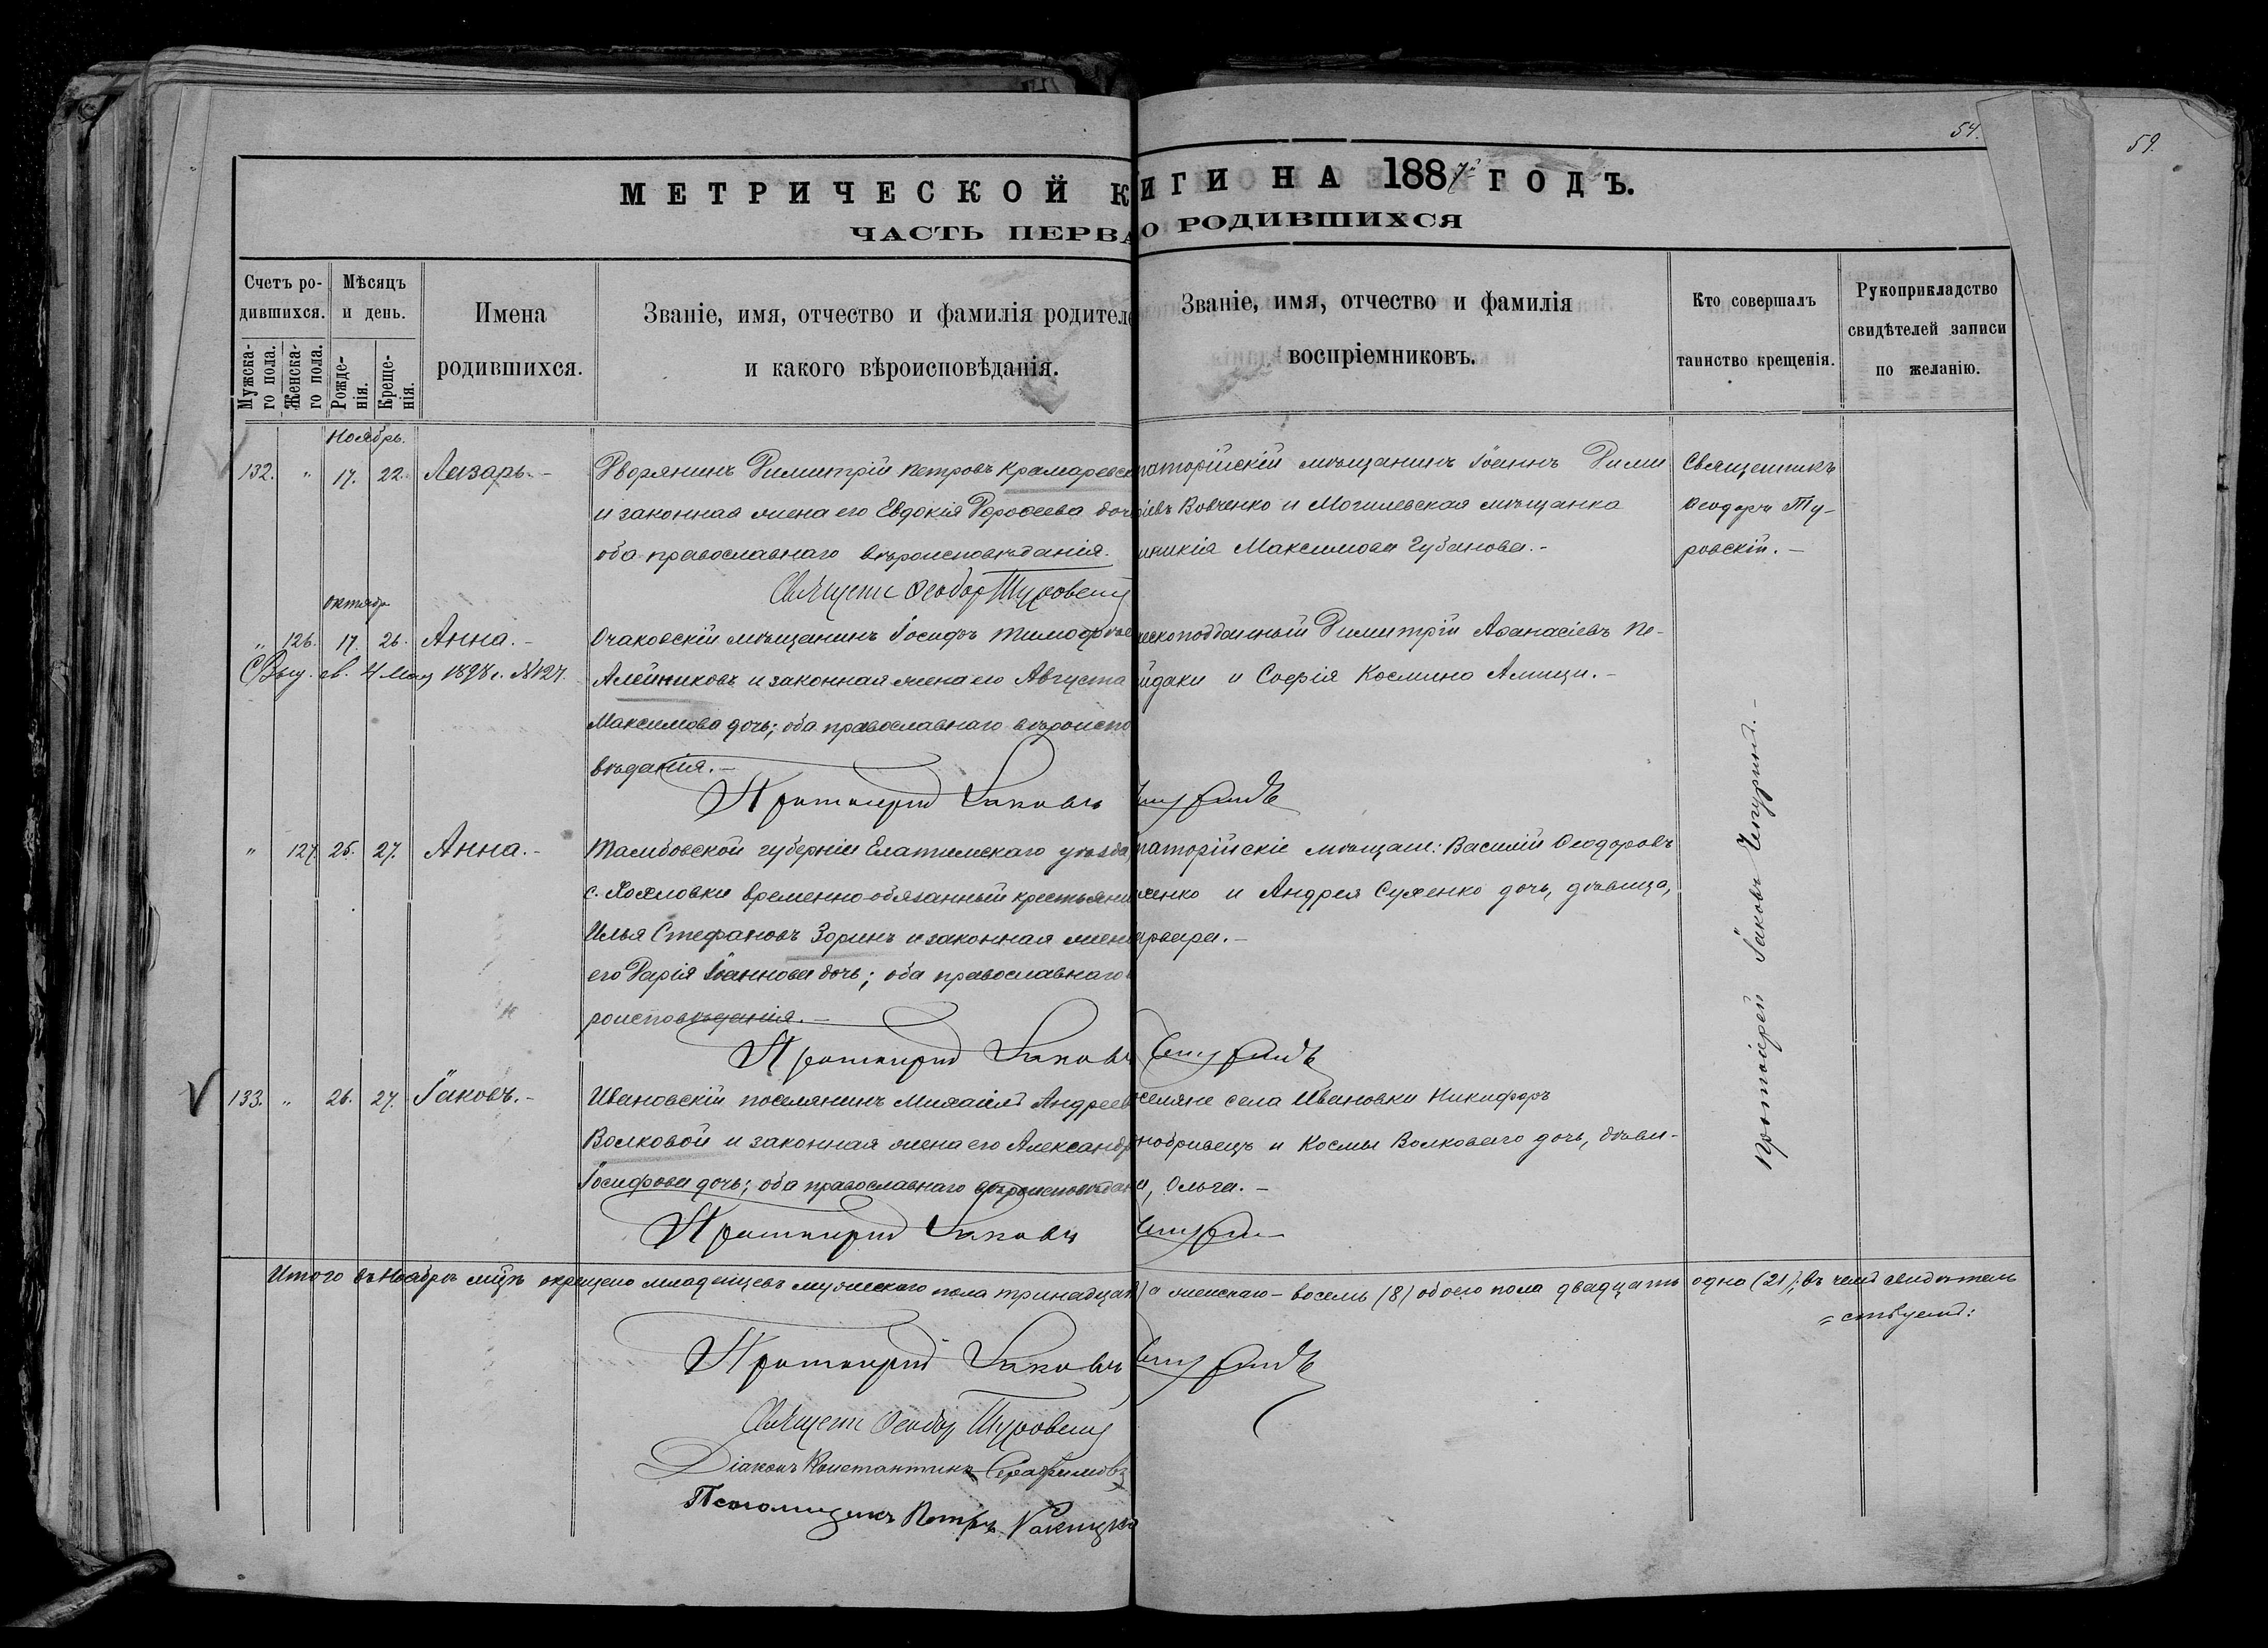 54.
59.
МЕТРИЧЕСКОЙ К
ИГИ НА 1887й ГОДЪ.
ЧАСТЬ ПЕРВА
О РОДИВШИХСЯ
Счетъ ро-
дившихся.
Мужска-
го пола.
Женска-
го пола.
Мѣсяцъ
и день.
Рожде-
нія.
Креще-
нія.
Имена
родившихся.
Званіе, имя, отчество и фамилія родителе
и какого вѣроисповѣданія.
Званіе, имя, отчество и фамилія
воспріемниковъ.
Кто совершалъ
таинство крещенія.
Рукоприкладство
свидѣтелей записи
по желанію.
Ноябрь.
132. " 17. 22. Лазарь. -
Дворянинъ Димитрій Петровъ Крамаревск
и законная жена его Евдокія Дороѳеева доч
оба православнаго вѣроисповѣданія.
Священн Ѳеодор Туровскій
паторійскій мѣщанинъ Іоаннъ Дими
ріевъ Вовченко и Могилевская мѣщанка
Максимова Губанова. -
Священникъ
Ѳеодоръ Ту-
ровскій. -
Октябр
" 126. 17. 26. Анна. -
Выд. св. 4 Мая 1898 г. №127.
Очаковскій мѣщанинъ Іосифъ Тимоѳѣе
Алейниковъ и законная жена его Августа
Максимова дочь; оба православнаго вѣроиспо
вѣданія. -
Протоіерей Іаковъ
Чепуринъ
ескоподданный Димитрій Аѳанасіевъ Пе-
йдаки и Софія Космино Алищи. -
" 127. 25. 27. Анна. -
Тамбовской губерніи Елатемскаго уѣзда
с. Хохловки временно-обязанный крестьяни
Илья Стефановъ Зоринъ и законная жен
его Дарія Іоаннова дочь; оба православнаго
роисповѣданія. -
Протоіерей Іаковъ
Чепуринъ
паторійскіе мѣщане: Василій Ѳеодоровъ
женко и Андрея Суженко дочь, дѣвица,
арвара. -
Протоіерей Іаковъ Чепуринъ. -
V 133. " 26. 27. Іаковъ. -
Ивановскій поселянинъ Михаилъ Андреев
Волковой и законная жена его Александр
Іосифова дочь; оба православнаго вѣроисповѣдан
Протоіерей Іаковъ
Чепурин
селяне села Ивановки Никифоръ
нобривецъ и Космы Волковаго дочь, дѣви-
а, Ольга. -
Итого въ Ноябрѣ м-цѣ окрещено младенцевъ мужескаго пола тринадцат
) а женскаго - восемь (8) обоего пола двадцать одно (21); въ чемъ свидѣтель
= ствуемъ:
Протоіерей Іаковъ
Чепуринъ
Священн Ѳеодор Туровскій
Діаконъ Константинъ Серафимовъ
Псаломщикъ Петръ